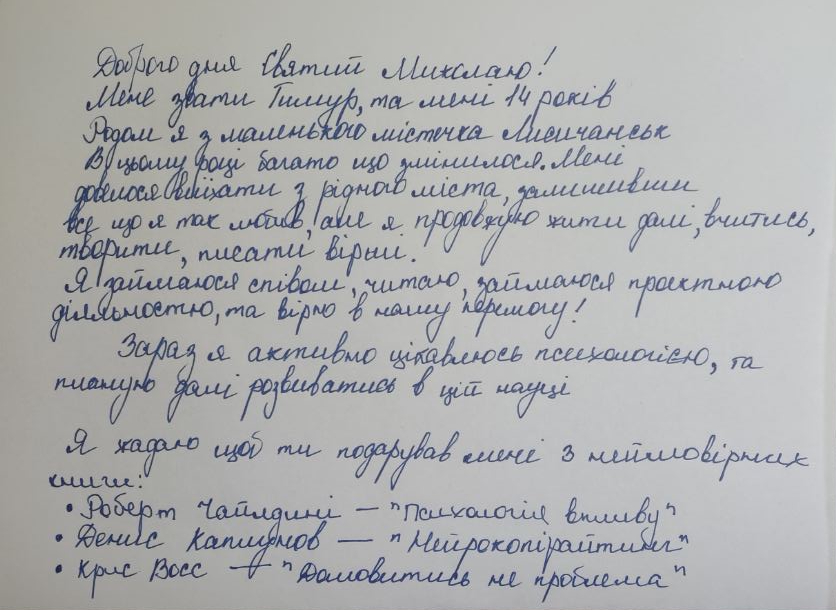 Доброго дня Святий Миколаю!
Мене звати Тимур, та мені 14 років
Родом я з маленького містечка Лисичанськ
В цьому році багато що змінилося. Мені
довелося виїхати з рідного міста, залишивши
все що я так любив, але я продовжую жити далі, вчитись,
творити, писати вірши.
Я займаюся співом, читаю, займаюся проєктною
діяльностю, та вірю в нашу перемогу!
Зараз я активно цікавлюсь психологією, та
планую далі розвиватись в цій науці
Я жадаю щоб ти подарував мені 3 неймовірних
книги:
• Роберт Чайлдині — "Психологія впливу"
• Денис Каплунов — "Нейрокопірайтинг"
• Крис Восс — "Домовитись не проблема"